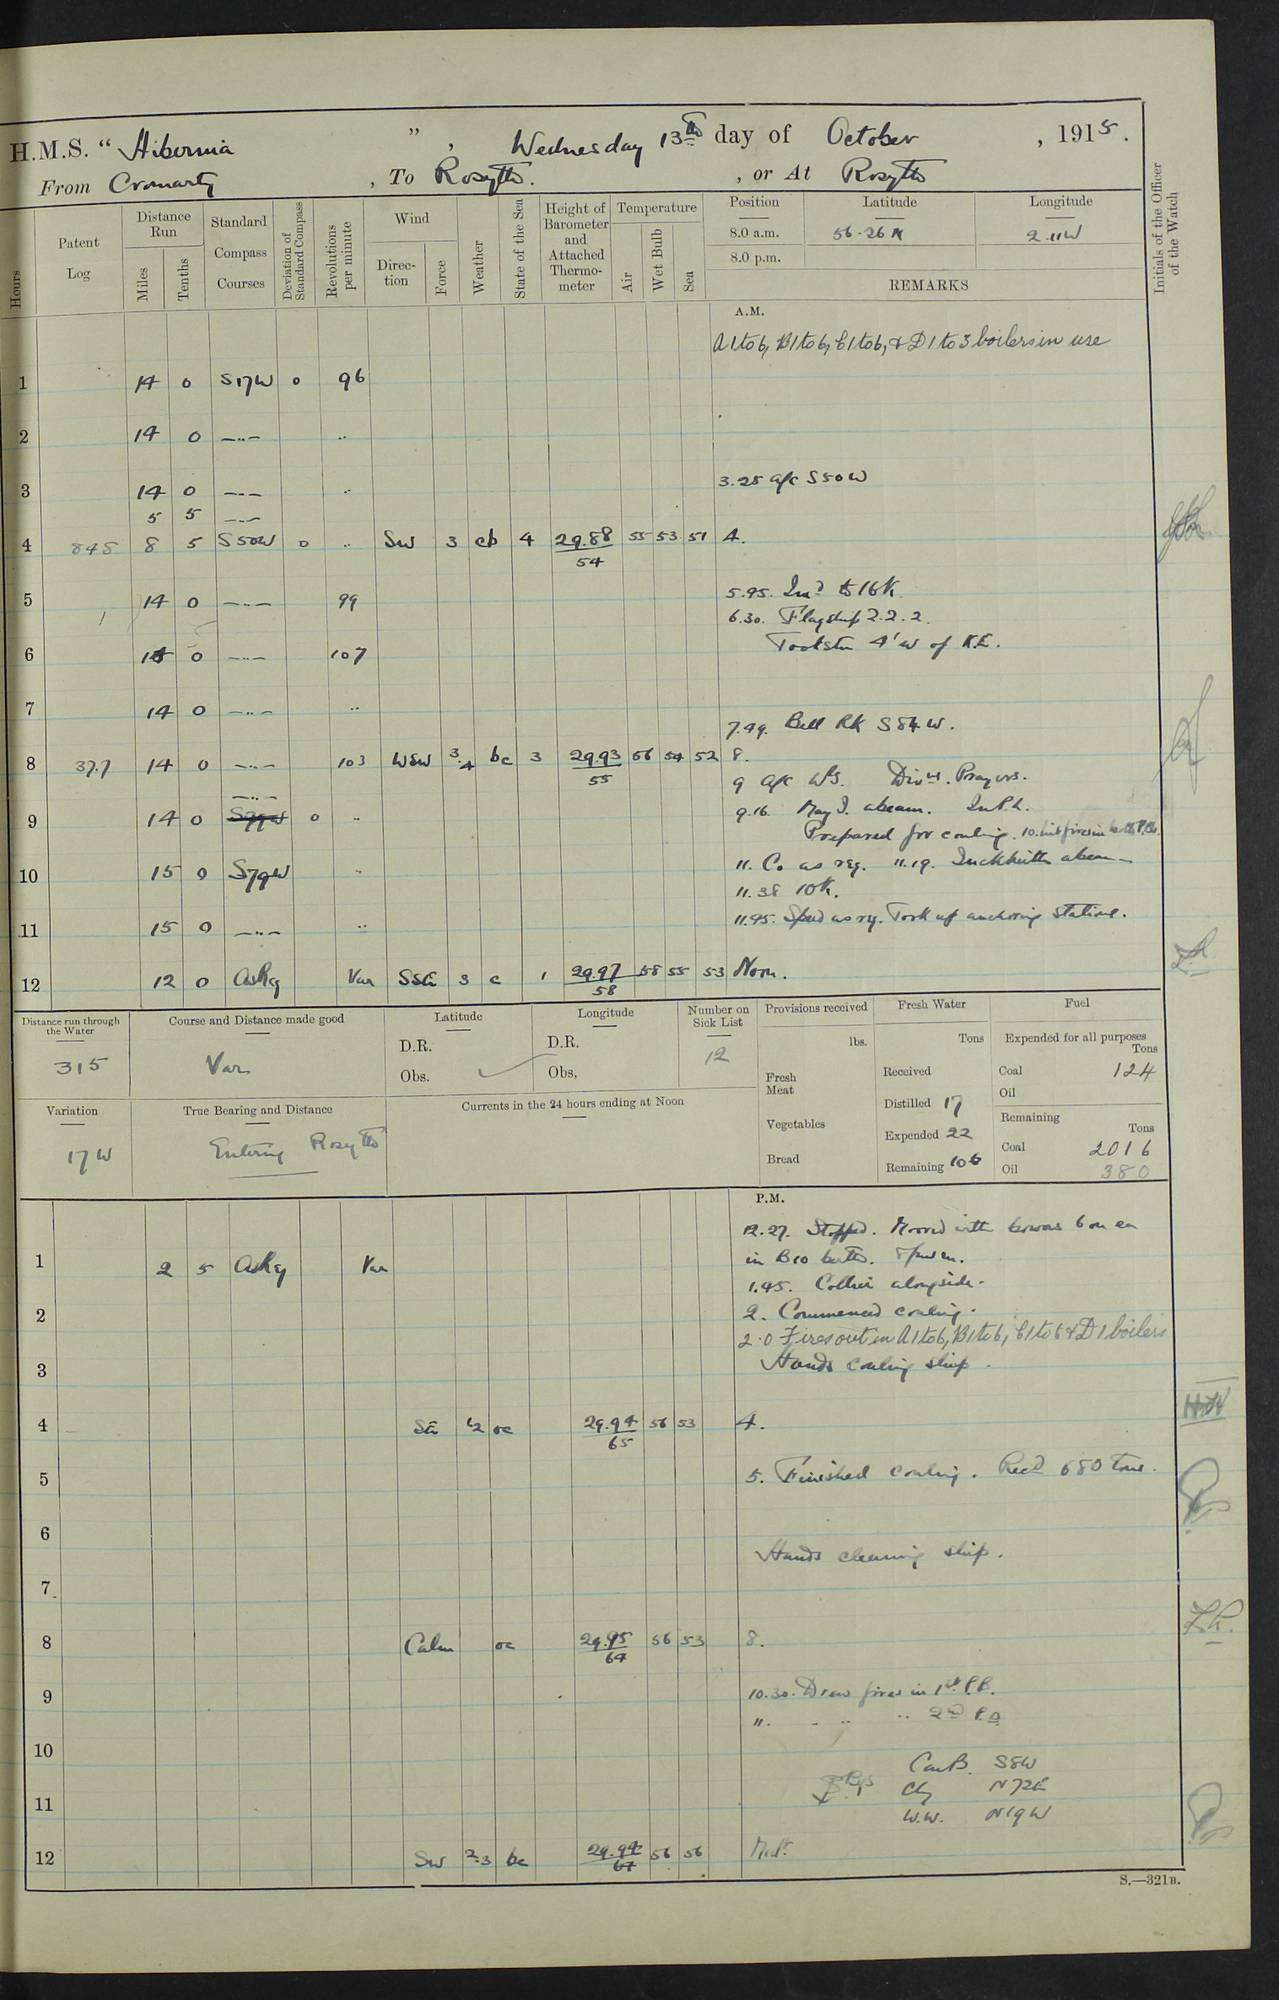 H.M.S. “ Hibernia ” , Wednesday 13th day of October , 1915.
From Cromarty , To Rosyth. , or At Rosyth
Hours
Patent Log
Distance Run
Miles
Tenths
Standard Compass Courses
Deviation of Standard Compass
Revolutions per minute
Wind
Direc-tion
Force
Weather
State of the Sea
Height of Barometer and Attached Thermo-meter
Temperature
Air
Wet Bulb
Sea
Position Latitude Longitude
8.0 a.m. 56.26 N 2.11 W
8.0 p.m.
REMARKS
Initials of the Officer of the Watch
A.M.
A1 to 6, B1 to 6, C1 to 6, & D1 to 3 boilers in use
1 14 0 S17W 0 96
2 14 0 —..— ..
3 14 0 —..— .. 3.25 a/c S50W
5 5 —..—
4 848 8 5 S50W 0 .. SW 3 cb 4 29.88 55 53 51 4.
54
5 14 0 —..— 99
to 16K
6.30. Flagship 2.2.2.
6 0 —..— 107 4' W of K.E.
7 14 0 —..— ..
7.49. Bell Rk S84W.
8 37.7 14 0 —..— 103 WSW 3.4 bc 3 29.93 56 54 52 8.
55
9 a/c Divns. Prayers.
—..—
9 14 0 0 .. 9.16. May I. abeam.
Prepared for coaling.
10 15 0 S79W .. 11. Co as req. 11.19. Inchkeith abeam
11.38 10K.
11 15 0 —..— .. 11.45. Speed as req. Took up anchoring stations.
12 12 0 As Req Var SSE 3 c 1 29.97 58 55 53 Noon.
58
Distance run through the Water
315
Course and Distance made good
Var
Latitude
D.R.
Obs.
Longitude
D.R.
Obs.
Number on Sick List
12
Provisions received
lbs.
Fresh Meat
Vegetables
Bread
Fresh Water
Tons
Received
Distilled 17
Expended 22
Remaining 106
Fuel
Expended for all purposes
Tons
Coal 124
Oil
Remaining
Tons
Coal 2016
Oil 380
Variation
17 W
True Bearing and Distance
Entering Rosyth
Currents in the 24 hours ending at Noon
P.M.
12.27. Stopped. Moored with bowers 6 on ea
1 2 5 As Req Var in B10 berth.
1.45. Collier alongside.
2 2. Commenced coaling.
2.0 Fires out in A1 to 6, B1 to 6, C1 to 6 & D1 boilers
3 Hands coaling ship.
4 SE 1/2 oc 29.94 56 53 4.
65
5 5. Finished coaling. Recd 680 tons.
6
Hands cleaning ship.
7
8 Calm oc 29.95 56 53 8.
64
9 10.30. Drew fires in 1st P.B.
11. .. .. .. 2nd P.B
10
S8W
11 N72E
W.W. N19W
12 SW 2.3 bc 29.94 56 56 Midt.
67
S.—321B.